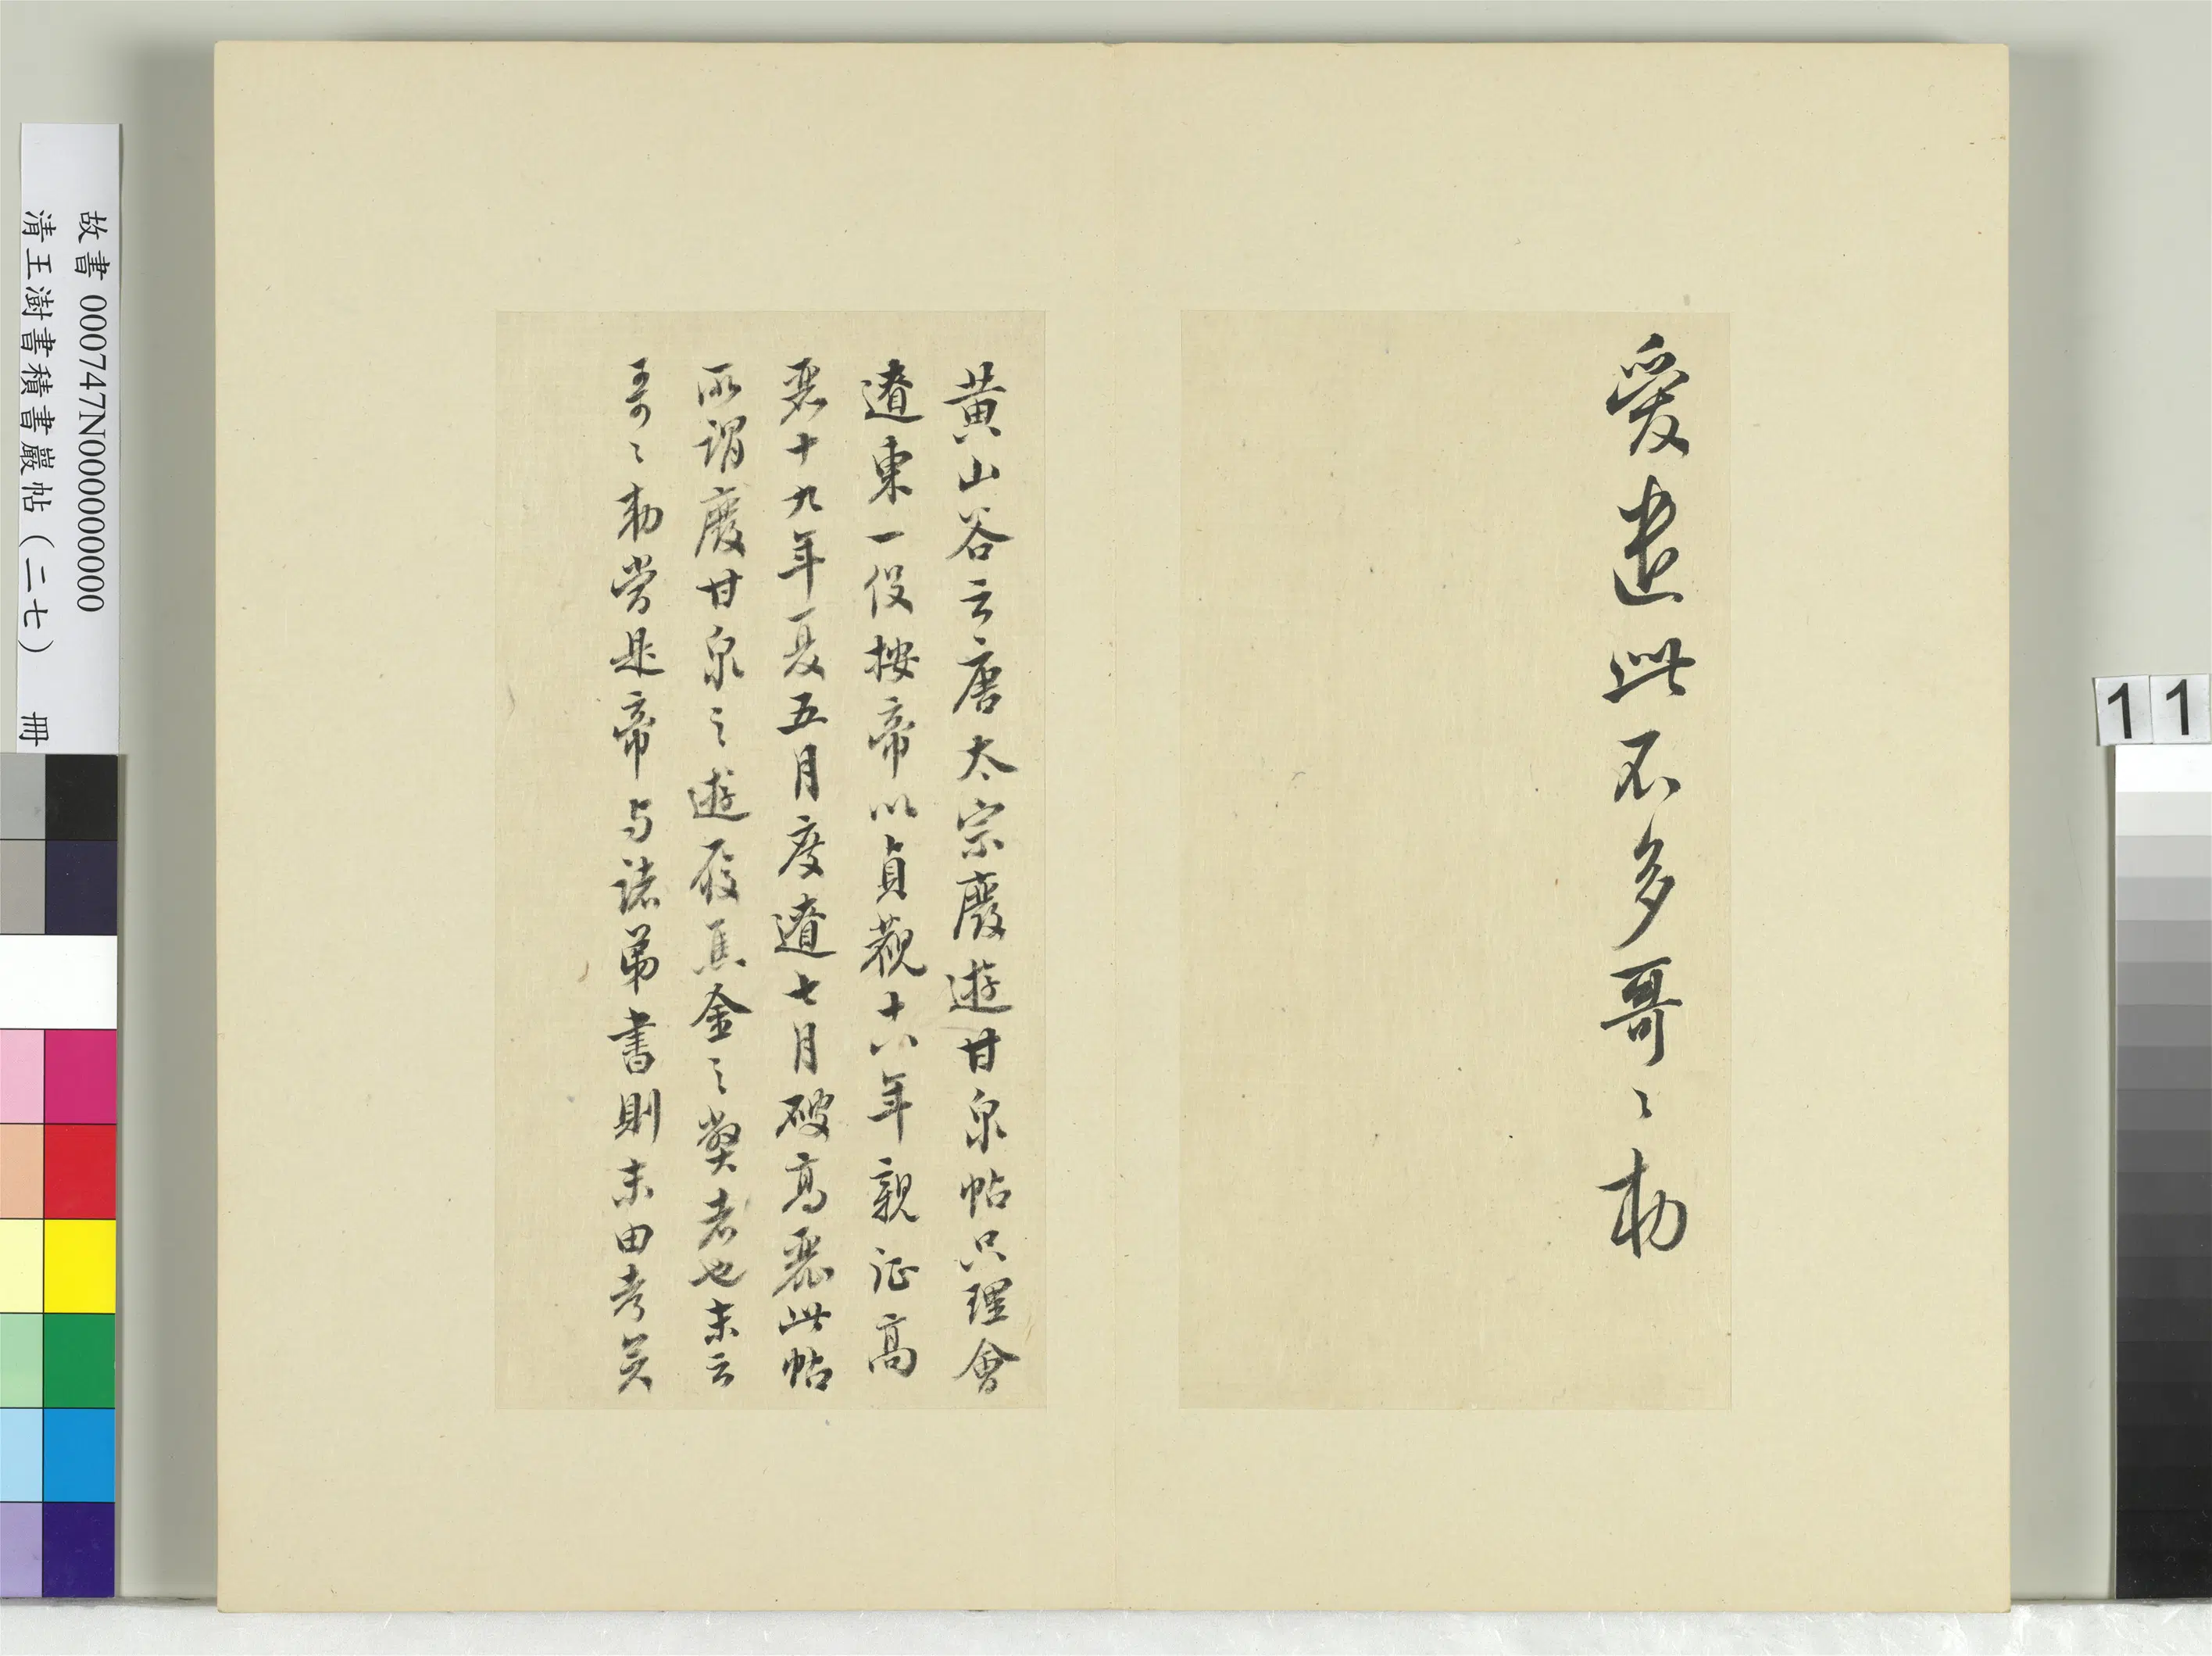 爰遣此不多哥〻勅
黄山谷云唐太宗廢遊甘泉帖只理會
遼東一役按帝以貞觀十八年親征高
麗十九年夏五月度遼七月破高麗此帖
所謂廢甘泉之遊 馬金之獘者也末云
哥〻勅当是帝与諸弟書則末由考矣
故書 000747N000000000
清王澍書積書巖帖（二七） 冊
11